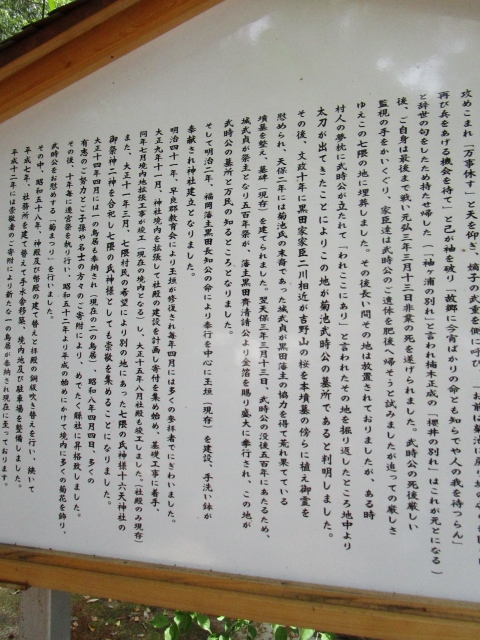 攻めこまれ「万事休す」と天を仰ぎ、嫡子の武重を側に呼び
再び兵をあげる機会を待て」と己が袖を破り「故郷に今宵ばかりの命とも知らでや人の我を待つらん」
と辞世の句をしたため持たせ帰した(「袖ヶ浦の別れ」と言われ楠木正成の「櫻井の別れ」はこれが元となる)
後、ご自身は最後まで戦い元弘三年三月十三日非業の死を遂げられました。武時公の死後厳しい
監視の手をかいくぐり、家臣達は武時公のご遺体を肥後へ帰そうと試みましたが追っての厳しさ
ゆえこの七隈の地に埋葬しました。その後長い間その地は放置されておりましたが、ある時
村人の夢枕に武時公が立たれて「われここにあり」と言われたその地を掘り返したところ地中より
太刀が出てきたことによりこの地が菊池武時公の墓所であると判明しました。
その後、文政十年に黒田家家臣二川相近が吉野山の桜を本墳墓の傍らに植え御霊を
慰められ、天保二年には菊池氏の末裔であった城武貞が黒田藩主の協力を得て荒れ果てている
墳墓を整え、墓碑(現存)を建てられました。翌天保三年三月十三日、武時公の没後五百年にあたるため、
城武貞が祭主となり五百年祭が、藩主黒田齊清請公より金箔を賜り盛大に奉行され、この地が
武時公の墓所と万民の知るところとなりました。
そして明治二年、福岡藩主黒田長知公の命により奉行を中心に玉垣(現存)を建設、手洗い鉢が
奉献され神社建立となりました。
明治四十一年、早良郡教育会により玉垣が修復され毎年四月には多くの参拝者でにぎわいました。
大正九年十一月、神社境内を拡張して社殿の建設を計画し寄付を集め始め、基礎工事に着手、
同年七月境内地拡張工事が竣工(現在の境内となる)し、大正十五年八月社殿も竣工しました。(社殿のみ現存)
また、大正十一年三月、七隈村民の希望により別の地にあった七隈の氏神様十六天神社の
御祭神二神を合祀し七隈の氏神様としても崇敬を集めることになりました。
大正十四年十月には一の鳥居も奉納され(現在の二の鳥居)、昭和八年四月四日、多くの
有志のご努力とご子孫や名士の方々のご寄附により、めでたく縣社に昇格致しました。
その後、十年毎に遠忌祭を執り行い、昭和五十二年より平成の始めにかけて境内に多くの菊花を飾り、
武時公をお慰めする「菊まつり」を行いました。
その中、昭和五十八年、神殿及び幣殿の建て替えと拝殿の銅板吹き替えを行い、続いて
平成七年、社務所を建て替えて手水舎移築、境内地及び駐車場を整備しました。
平成十二年には崇敬者のご寄附により新たな一の鳥居が奉納され現在に至っております。